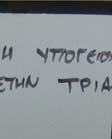 Η ΥΠΟΓΕΙΟΣ
ΕΤΗΝ ΤΡΙΑ